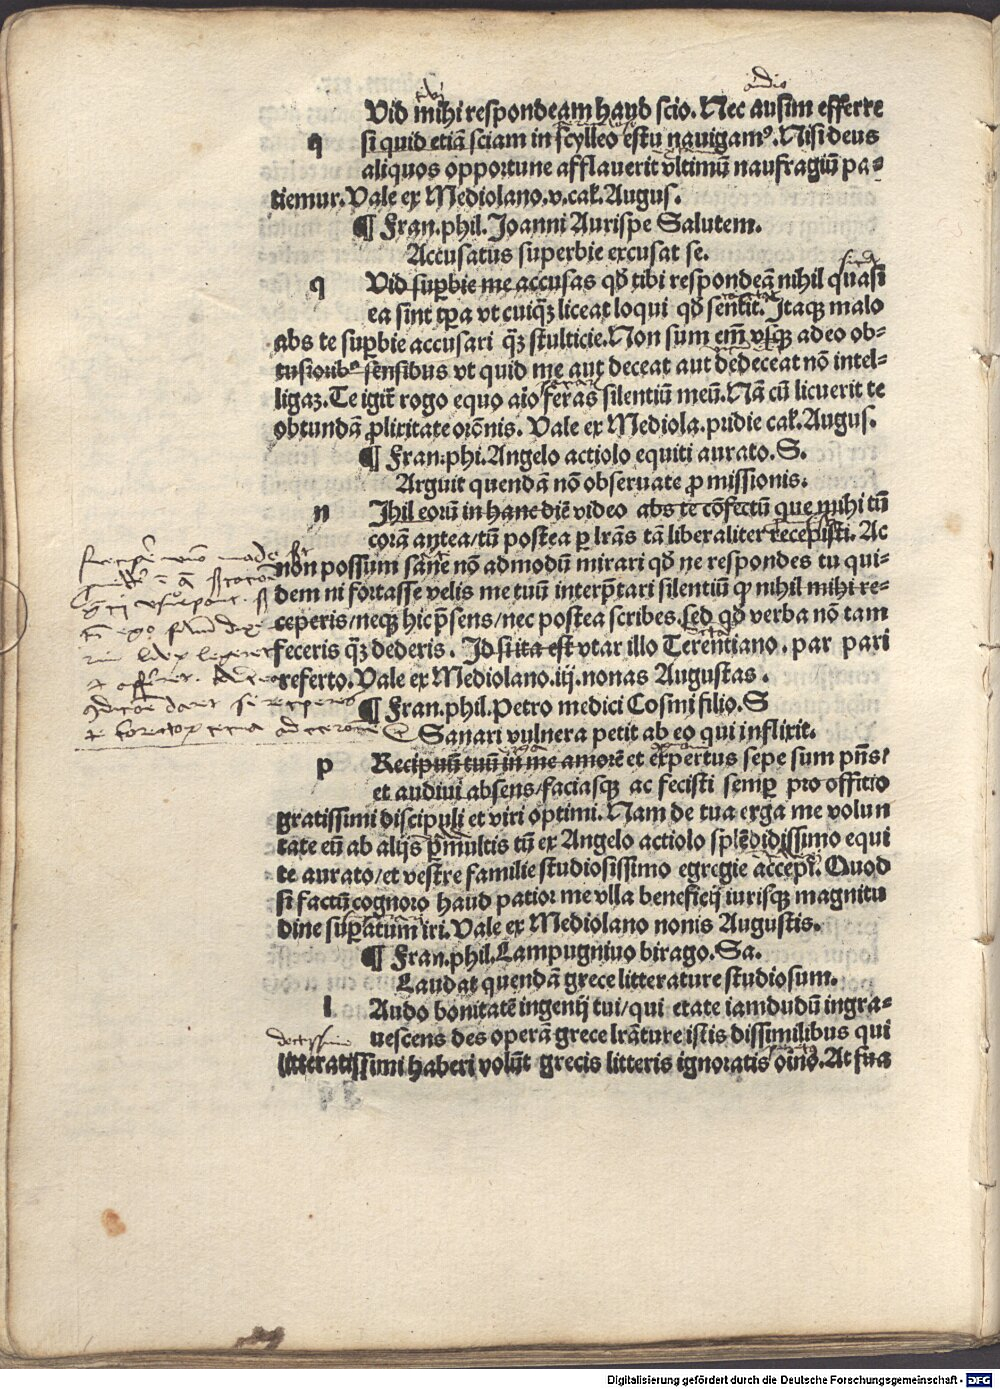 Vid mihi respondeam haud scio. Nec ausim efferre
q si quid etiā sciam in scylleo estu nauigamꝰ. Nisi deus
aliquos opportune afflauerit vltimū naufragiū pa⸗
tiemur. Vale ex Mediolano. v. cal. Augus.
¶ Fran. phil. Joanni Aurispe Salutem.
Accusatus superbie excusat se.
q Vid suꝑbie me accusas qđ tibi respondeā nihil quasi
ea sint tꝑa vt cuiqꝫ liceat loqui qđ sentit. Itaqꝫ malo
abs te suꝑbie accusari qꝫ stulticie. Non sum em̄ vsqꝫ adeo ob⸗
tusioribꝰ sensibus vt quid me aut deceat aut dedeceat nō intel⸗
ligaz. Te igit̄ rogo equo aīo feras silentiū meū. Nā cū licuerit te
obtundā ꝓlixitate orōnis. Vale ex Mediola. pridie cal. Augus.
¶ Fran. phi. Angelo actiolo equiti aurato. S.
Arguit quendā nō obseruate ꝓmissionis.
n Ihil eorū in hanc diē video abs te cōfectū que mihi tū
corā antea/tū postea ꝑ lr̄as tā liberaliter recepisti. Ac
non possum sane nō admodū mirari qđ ne respondes tu qui⸗
dem ni fortasse velis me tuū interp̄tari silentiū ꝙ nihil mihi re⸗
ceperis/neqꝫ hic p̄sens/nec postea scribes. Sed qđ verba nō tam
feceris qꝫ dederis. Id si ita est vtar illo Terentiano. par pari
referto. Vale ex Mediolano. iij. nonas Augustas.
¶ Fran. phil. Petro medici Cosmi filio. S
Sanari vulnera petit ab eo qui inflixit.
p Recipuū tuū in me amorē et expertus sepe sum pn̄s/
et audiui absens/faciasqꝫ ac fecisti semꝑ pro offitio
gratissimi discipuli et viri optimi. Nam de tua erga me volun
tate cū ab alijs ꝑmultis tū ex Angelo actiolo splēdidissimo equi
te aurato/et vestre familie studiosissimo egregie accepi. Quod
si factū cognoro haud patior me vlla beneficij iurisqꝫ magnitu
dine suꝑatum iri. Vale ex Mediolano nonis Augustis.
¶ Fran. phil. Lampugnino birago. Sa.
Laudat quendā grece litterature studiosum.
l Audo bonitatē ingenij tui/qui etate iamdudū ingra⸗
uescens des operā grece lr̄ature istis dissimilibus qui
doctissimi
litteratissimi haberi volūt grecis litteris ignoratis oīno. At sua
Digitalisierung gefördert durch die Deutsche Forschungsgemeinschaft - DFG